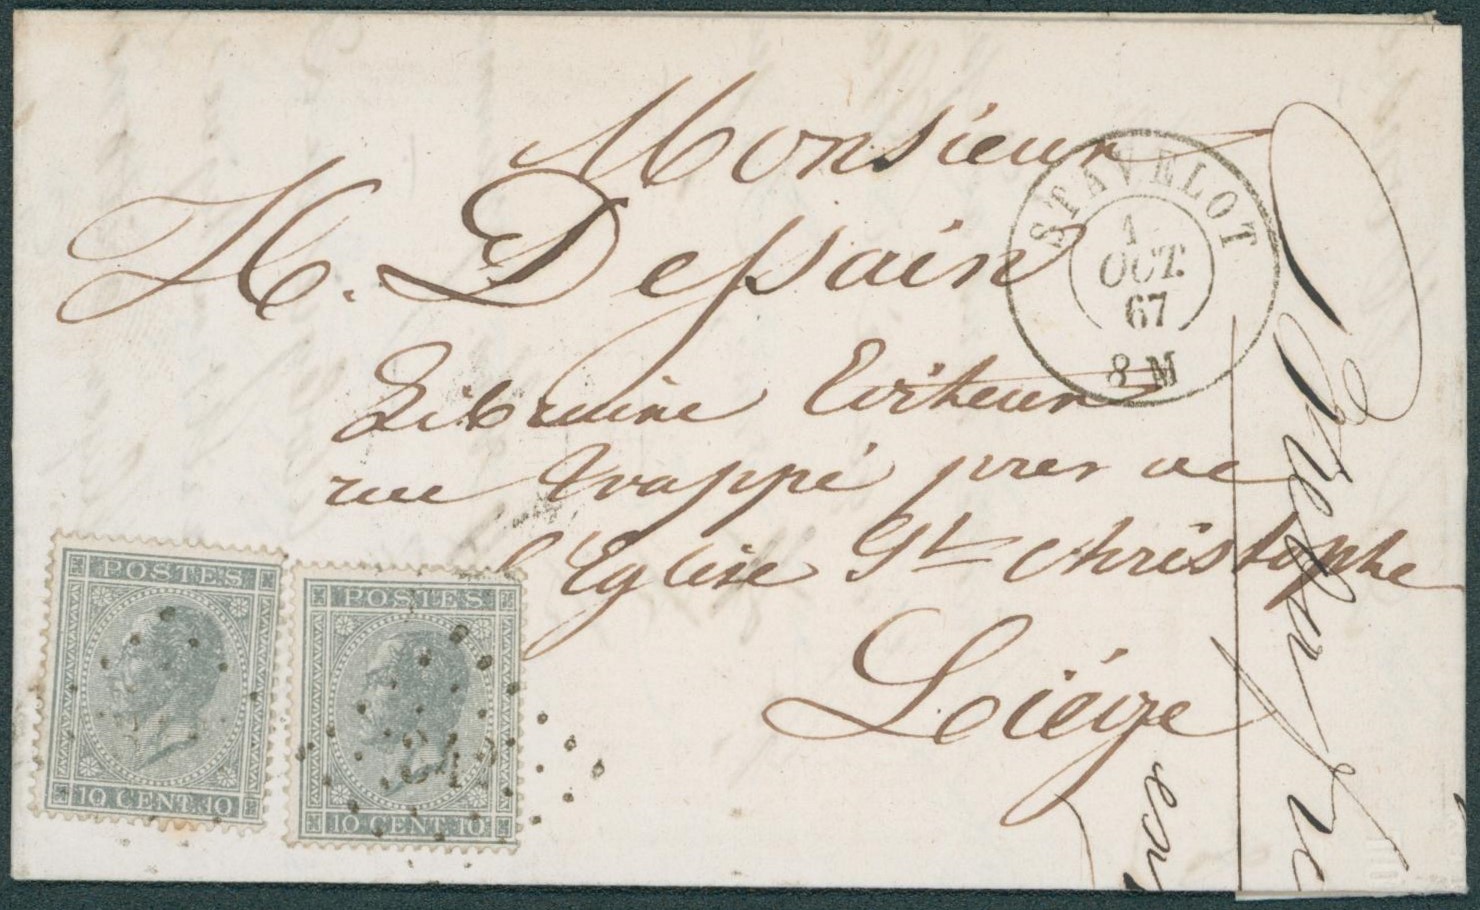 Monsieur
H. Dessain
Libraire Editeur
rue Trappé près de
l'Eglise St Christophe
Liége
STAVELOT
1
OCT.
67
8 M
POSTES
10 CENT. 10
POSTES
10 CENT. 10